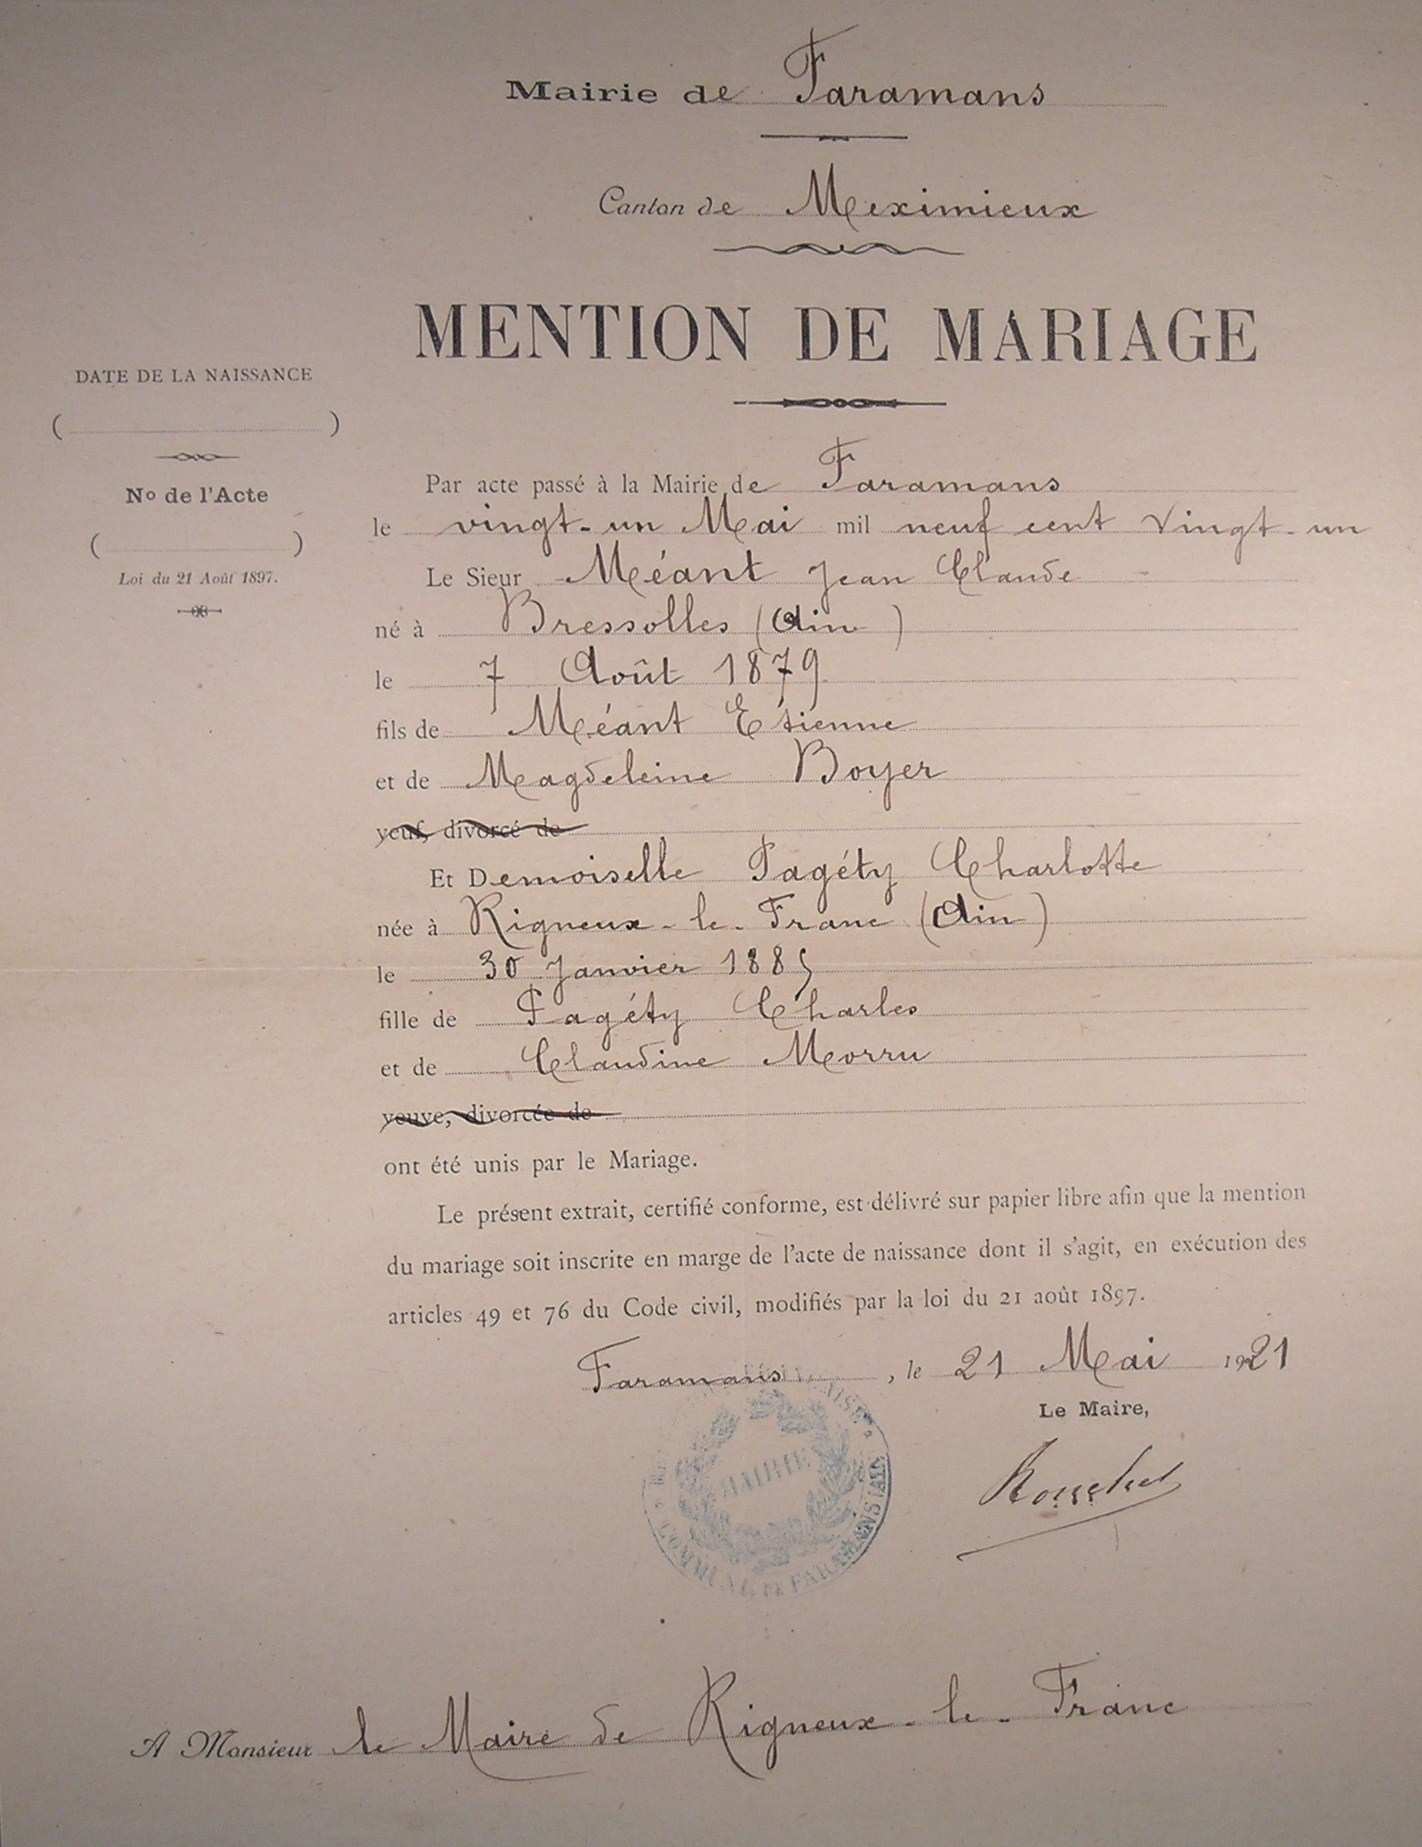 Mairie de Faramans
Canton de Meximieux
MENTION DE MARIAGE
DATE DE LA NAISSANCE
( )
No de l'Acte
( )
Loi du 21 Août 1897.
Par acte passé à la Mairie de Faramans
le vingt-un Mai mil neuf cent vingt-un
Le Sieur Méant Jean Claude
né à Bressolles (Ain)
le 7 Août 1879
fils de Méant Etienne
et de Magdeleine Boyer
veuf, divorcé de
Et Demoiselle Pagéty Charlotte
née à Rigneux-le-Franc (Ain)
le 30 Janvier 1885
fille de Pagéty Charles
et de Claudine Morru
veuve, divorcée de
ont été unis par le Mariage.
Le présent extrait, certifié conforme, est délivré sur papier libre afin que la mention
du mariage soit inscrite en marge de l'acte de naissance dont il s'agit, en exécution des
articles 49 et 76 du Code civil, modifiés par la loi du 21 août 1897.
Faramans, le 21 Mai 1921
Le Maire,
MAIRIE
COMMUNE DE FARAMANS (AIN)
A Monsieur le Maire de Rigneux-le-Franc